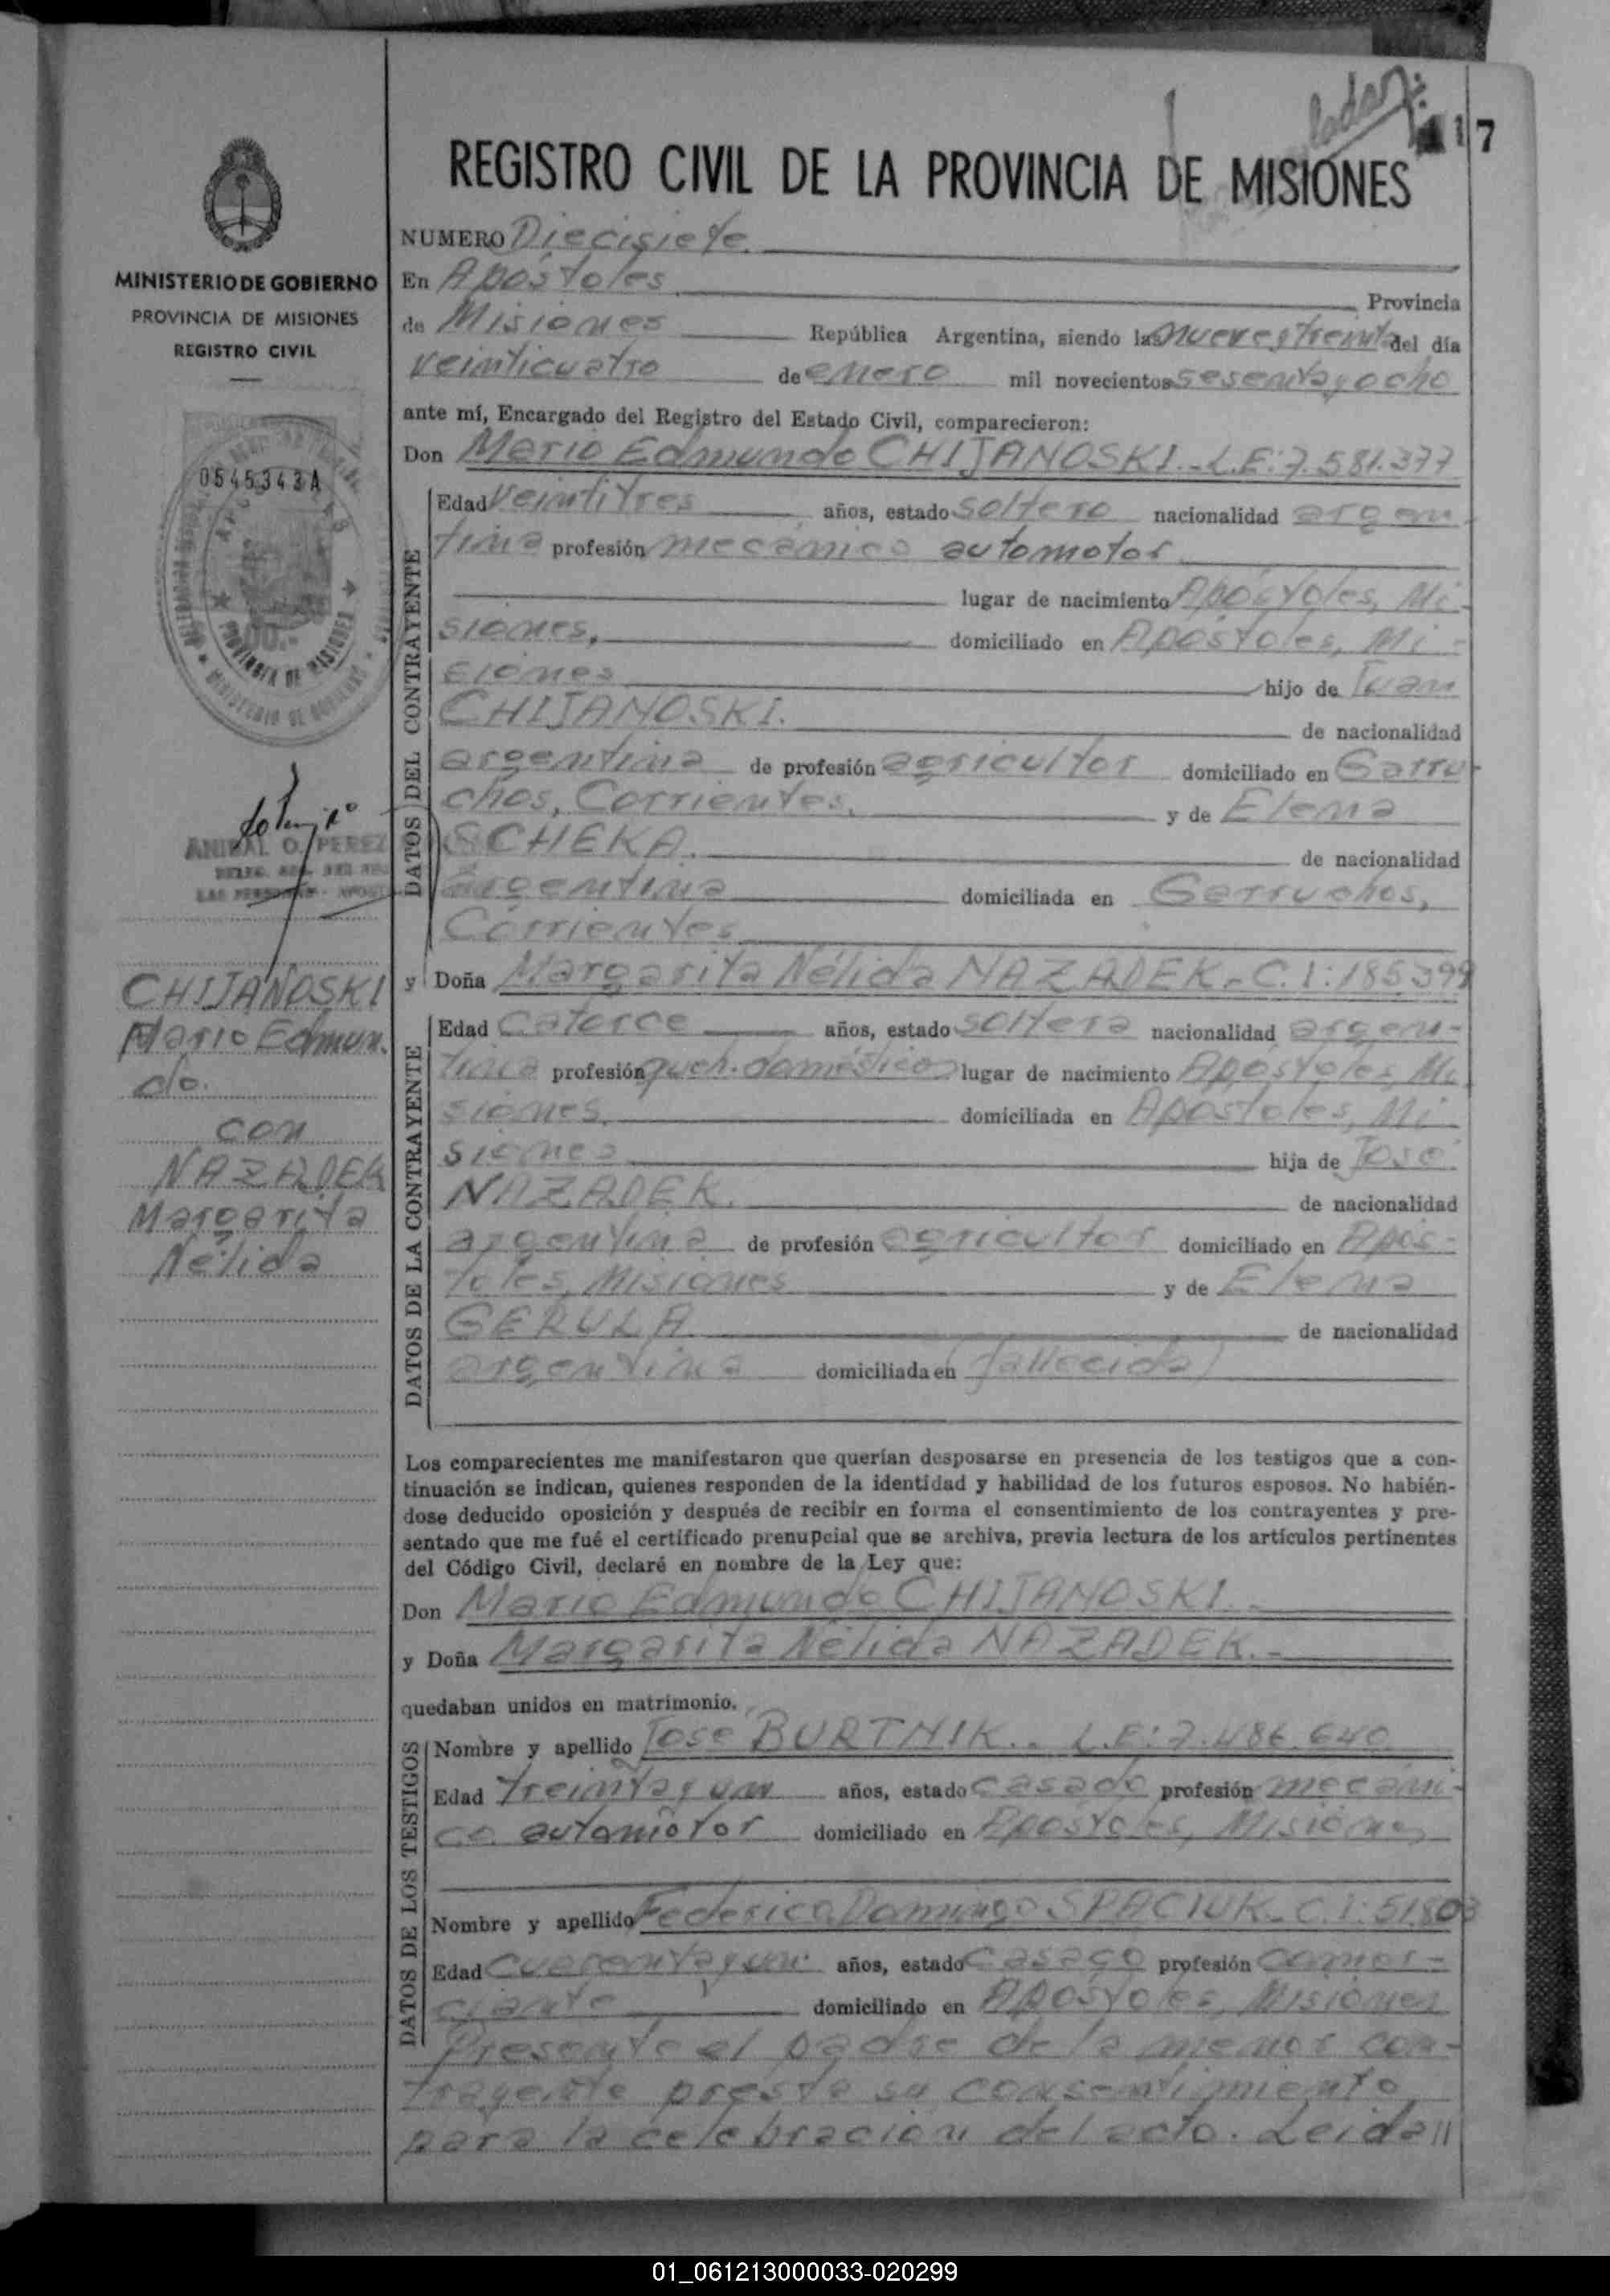 17
REGISTRO CIVIL DE LA PROVINCIA DE MISIONES
MINISTERIO DE GOBIERNO
PROVINCIA DE MISIONES
REGISTRO CIVIL
05453434 A
PROVINCIA DE MISIONES
MINISTERIO DE GOBIERNO
ANIBAL O. PEREZ
CHIJANOSKI
Mario Edmun.
do.
con
NAZADEK
Margarita
Nélida
NUMERO Diecisiete.
En Apóstoles Provincia
de Misiones República Argentina, siendo las nueve y treinta del día
veinticuatro de enero mil novecientos sesenta y ocho
ante mí, Encargado del Registro del Estado Civil, comparecieron:
Don Mario Edmundo CHIJANOSKI.-L.E:7.581.377
DATOS DEL CONTRAYENTE
Edad Veintitres años, estado soltero nacionalidad argen-
tina profesión mecánico automotor
lugar de nacimiento Apóstoles, Mi-
siones, domiciliado en Apóstoles, Mi-
siones hijo de Juan
CHIJANOSKI. de nacionalidad
argentina de profesión agricultor domiciliado en Garru-
chos, Corrientes, y de Elena
SCHEKA. de nacionalidad
argentina domiciliada en Garruchos,
Corrientes
y Doña Margarita Nélida NAZADEK-C.I:185.399
DATOS DE LA CONTRAYENTE
Edad Catorce años, estado soltera nacionalidad argen-
tina profesión queh. doméstico lugar de nacimiento Apóstoles, Mi-
siones, domiciliada en Apóstoles, Mi-
siones hija de José
NAZADEK. de nacionalidad
argentina de profesión agricultor domiciliado en Após-
toles, Misiones y de Elena
GERULA de nacionalidad
argentina domiciliada en (fallecida)
Los comparecientes me manifestaron que querían desposarse en presencia de los testigos que a con-
tinuación se indican, quienes responden de la identidad y habilidad de los futuros esposos. No habién-
dose deducido oposición y después de recibir en forma el consentimiento de los contrayentes y pre-
sentado que me fué el certificado prenupcial que se archiva, previa lectura de los artículos pertinentes
del Código Civil, declaré en nombre de la Ley que:
Don Mario Edmundo CHIJANOSKI.-
y Doña Margarita Nélida NAZADEK.-
quedaban unidos en matrimonio.
DATOS DE LOS TESTIGOS
Nombre y apellido José BURTNIK.. L.E:7.486.640
Edad treinta y un años, estado casado profesión mecáni-
co automotor domiciliado en Apóstoles, Misiones
Nombre y apellido Federico Domingo SPACIUK-C.I:51.803
Edad cuarenta y un años, estado casado profesión comer-
ciante domiciliado en Apóstoles, Misiones
Presente el padre de la menor con-
trayente presta su consentimiento
para la celebración del acto. Leida//
01_061213000033-020299